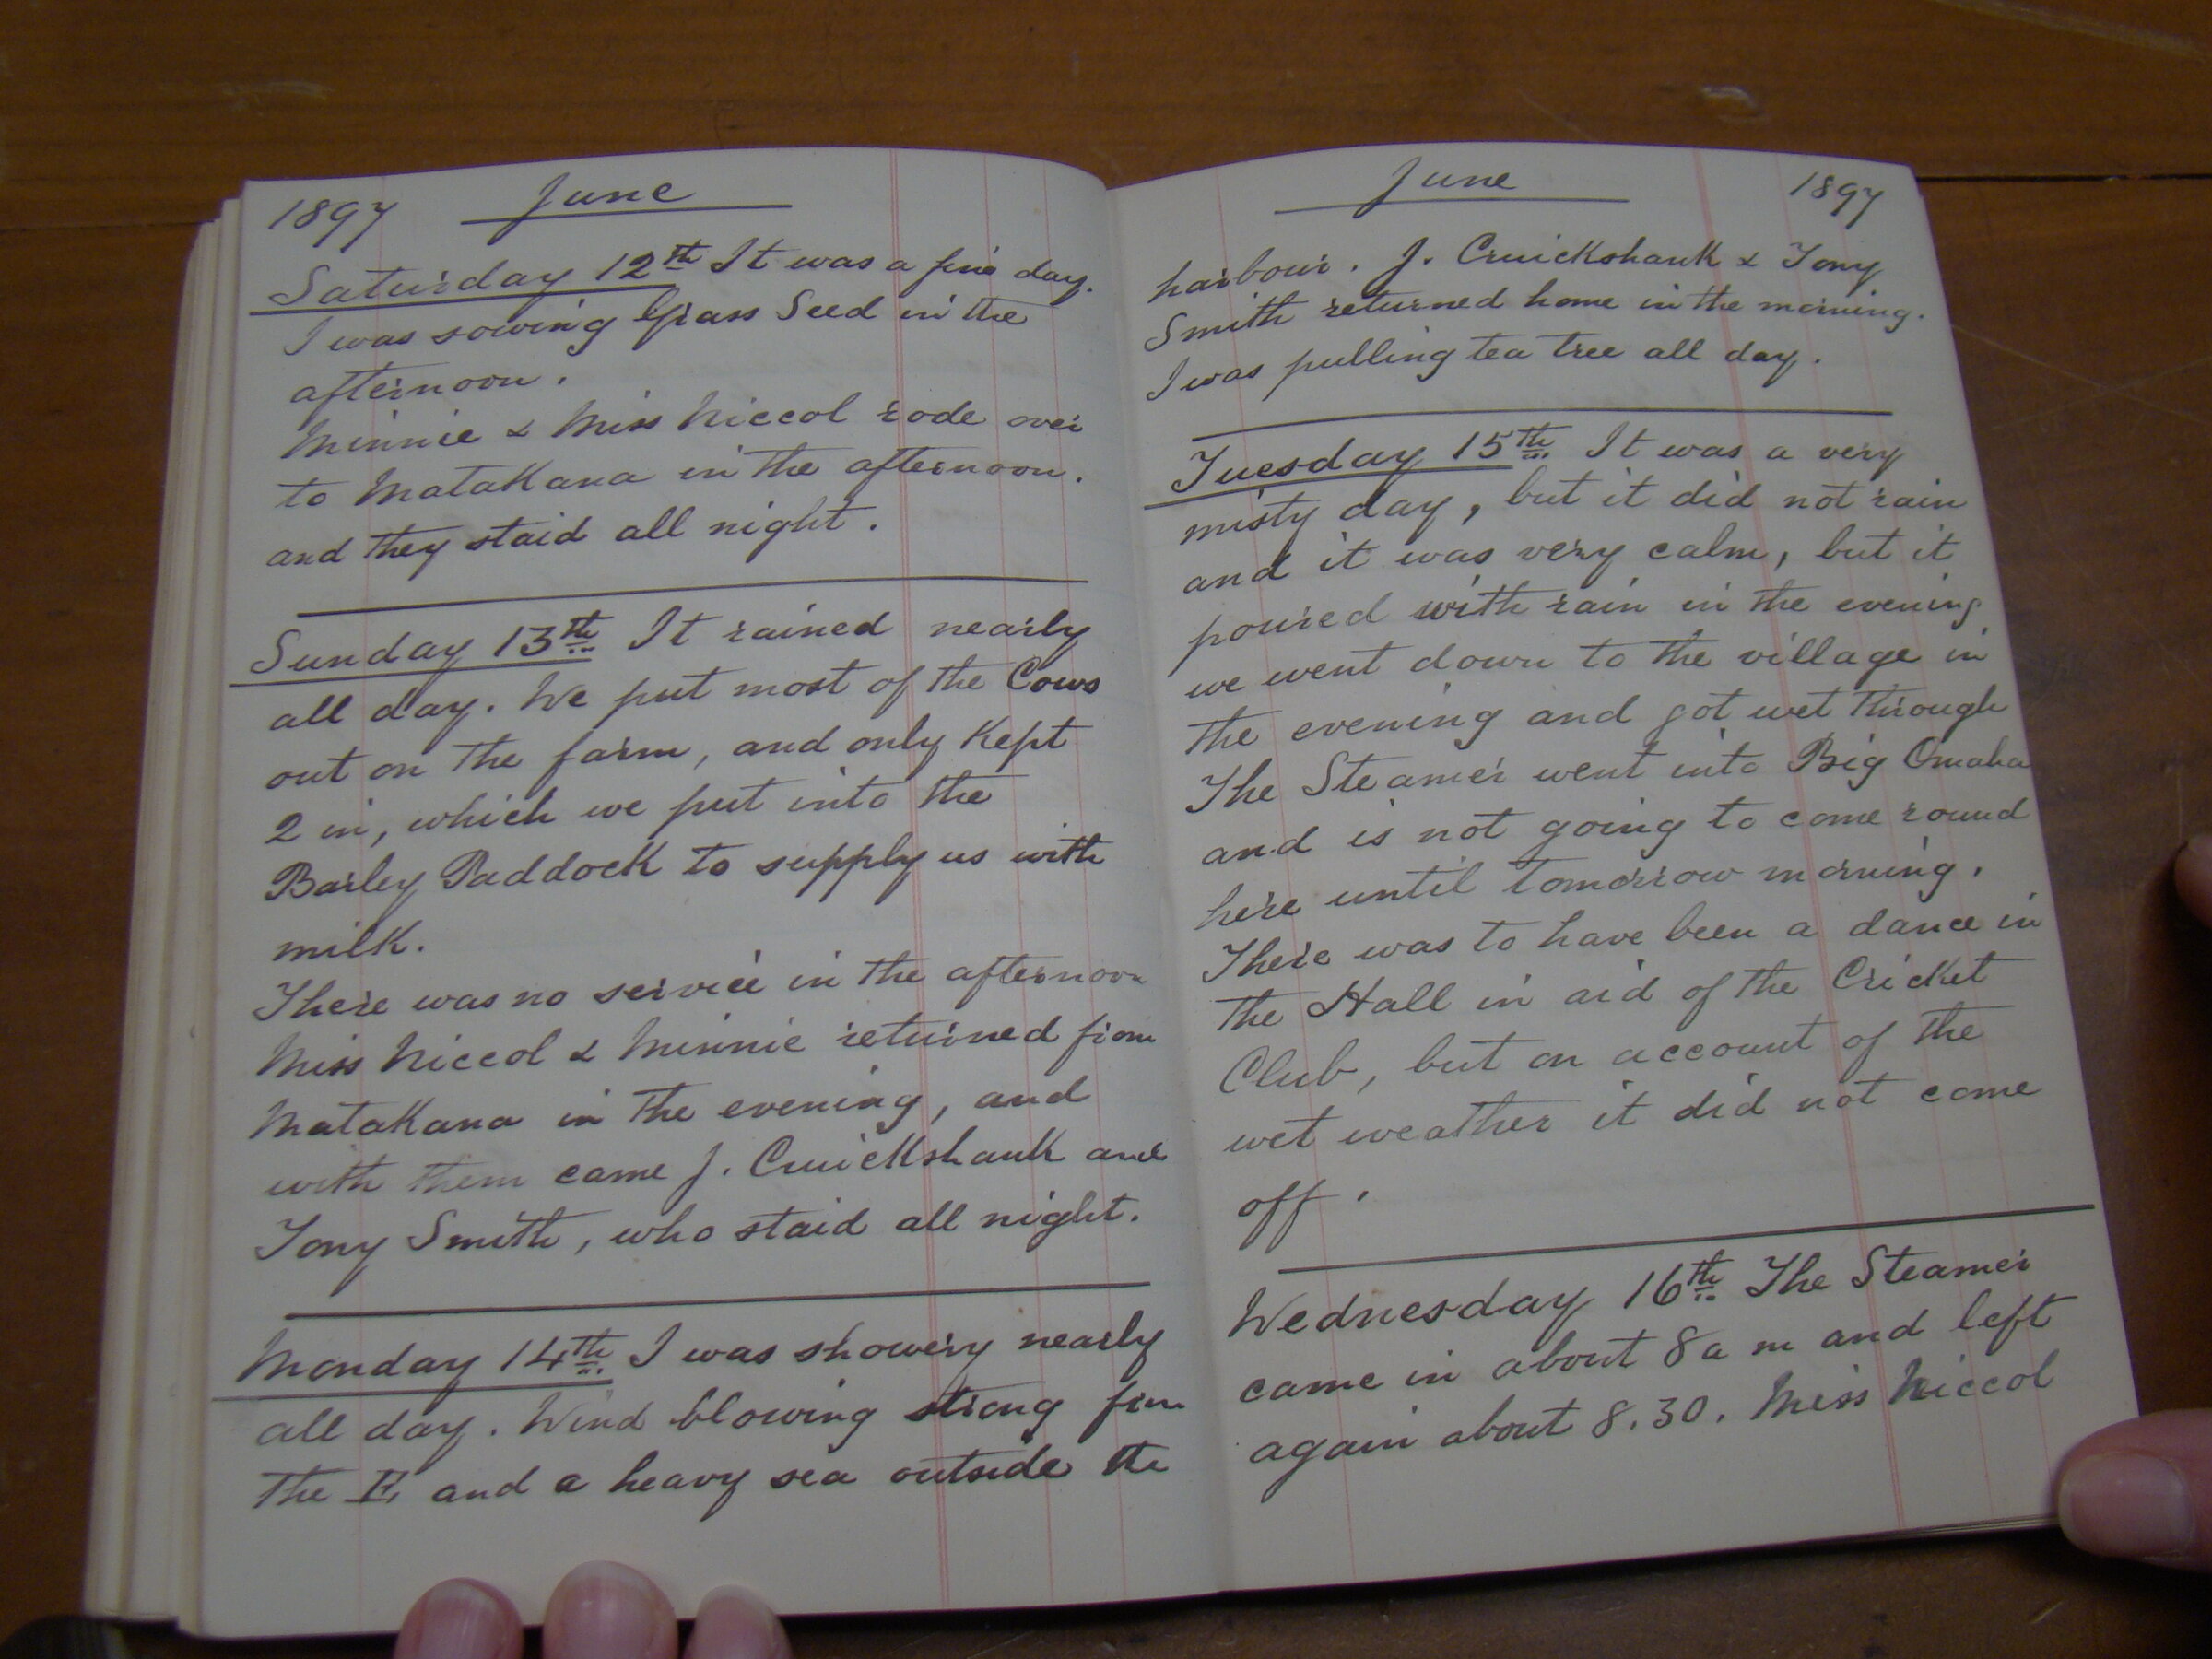 1897 June
Saturday 12th It was a fine day.
I was sowing Grass Seed in the
afternoon.
Minnie & Miss Niccol rode over
to Matakana in the afternoon.
and they staid all night.
Sunday 13th It rained nearly
all day. We put most of the Cows
out on the farm, and only Kept
2 in, which we put into the
Barley Paddock to supply us with
milk.
There was no service in the afternoon
Miss Niccol & Minnie returned from
Matakana in the evening, and
with them came J. Cruickshank and
Tony Smith, who staid all night.
Monday 14th I was showery nearly
all day. Wind blowing strong from
the E, and a heavy sea outside the
June 1897
harbour. J. Cruickshank & Tony
Smith returned home in the morning.
I was pulling tea tree all day.
Tuesday 15th It was a very
misty day, but it did not rain
and it was very calm, but it
poured with rain in the evening
we went down to the village in
the evening and got wet through
The Steamer went into Big Omaha
and is not going to come round
here until tomorrow morning.
There was to have been a dance in
the Hall in aid of the Cricket
Club, but on account of the
wet weather it did not come
off.
Wednesday 16th The Steamer
came in about 8 a m and left
again about 8.30. Miss Niccol